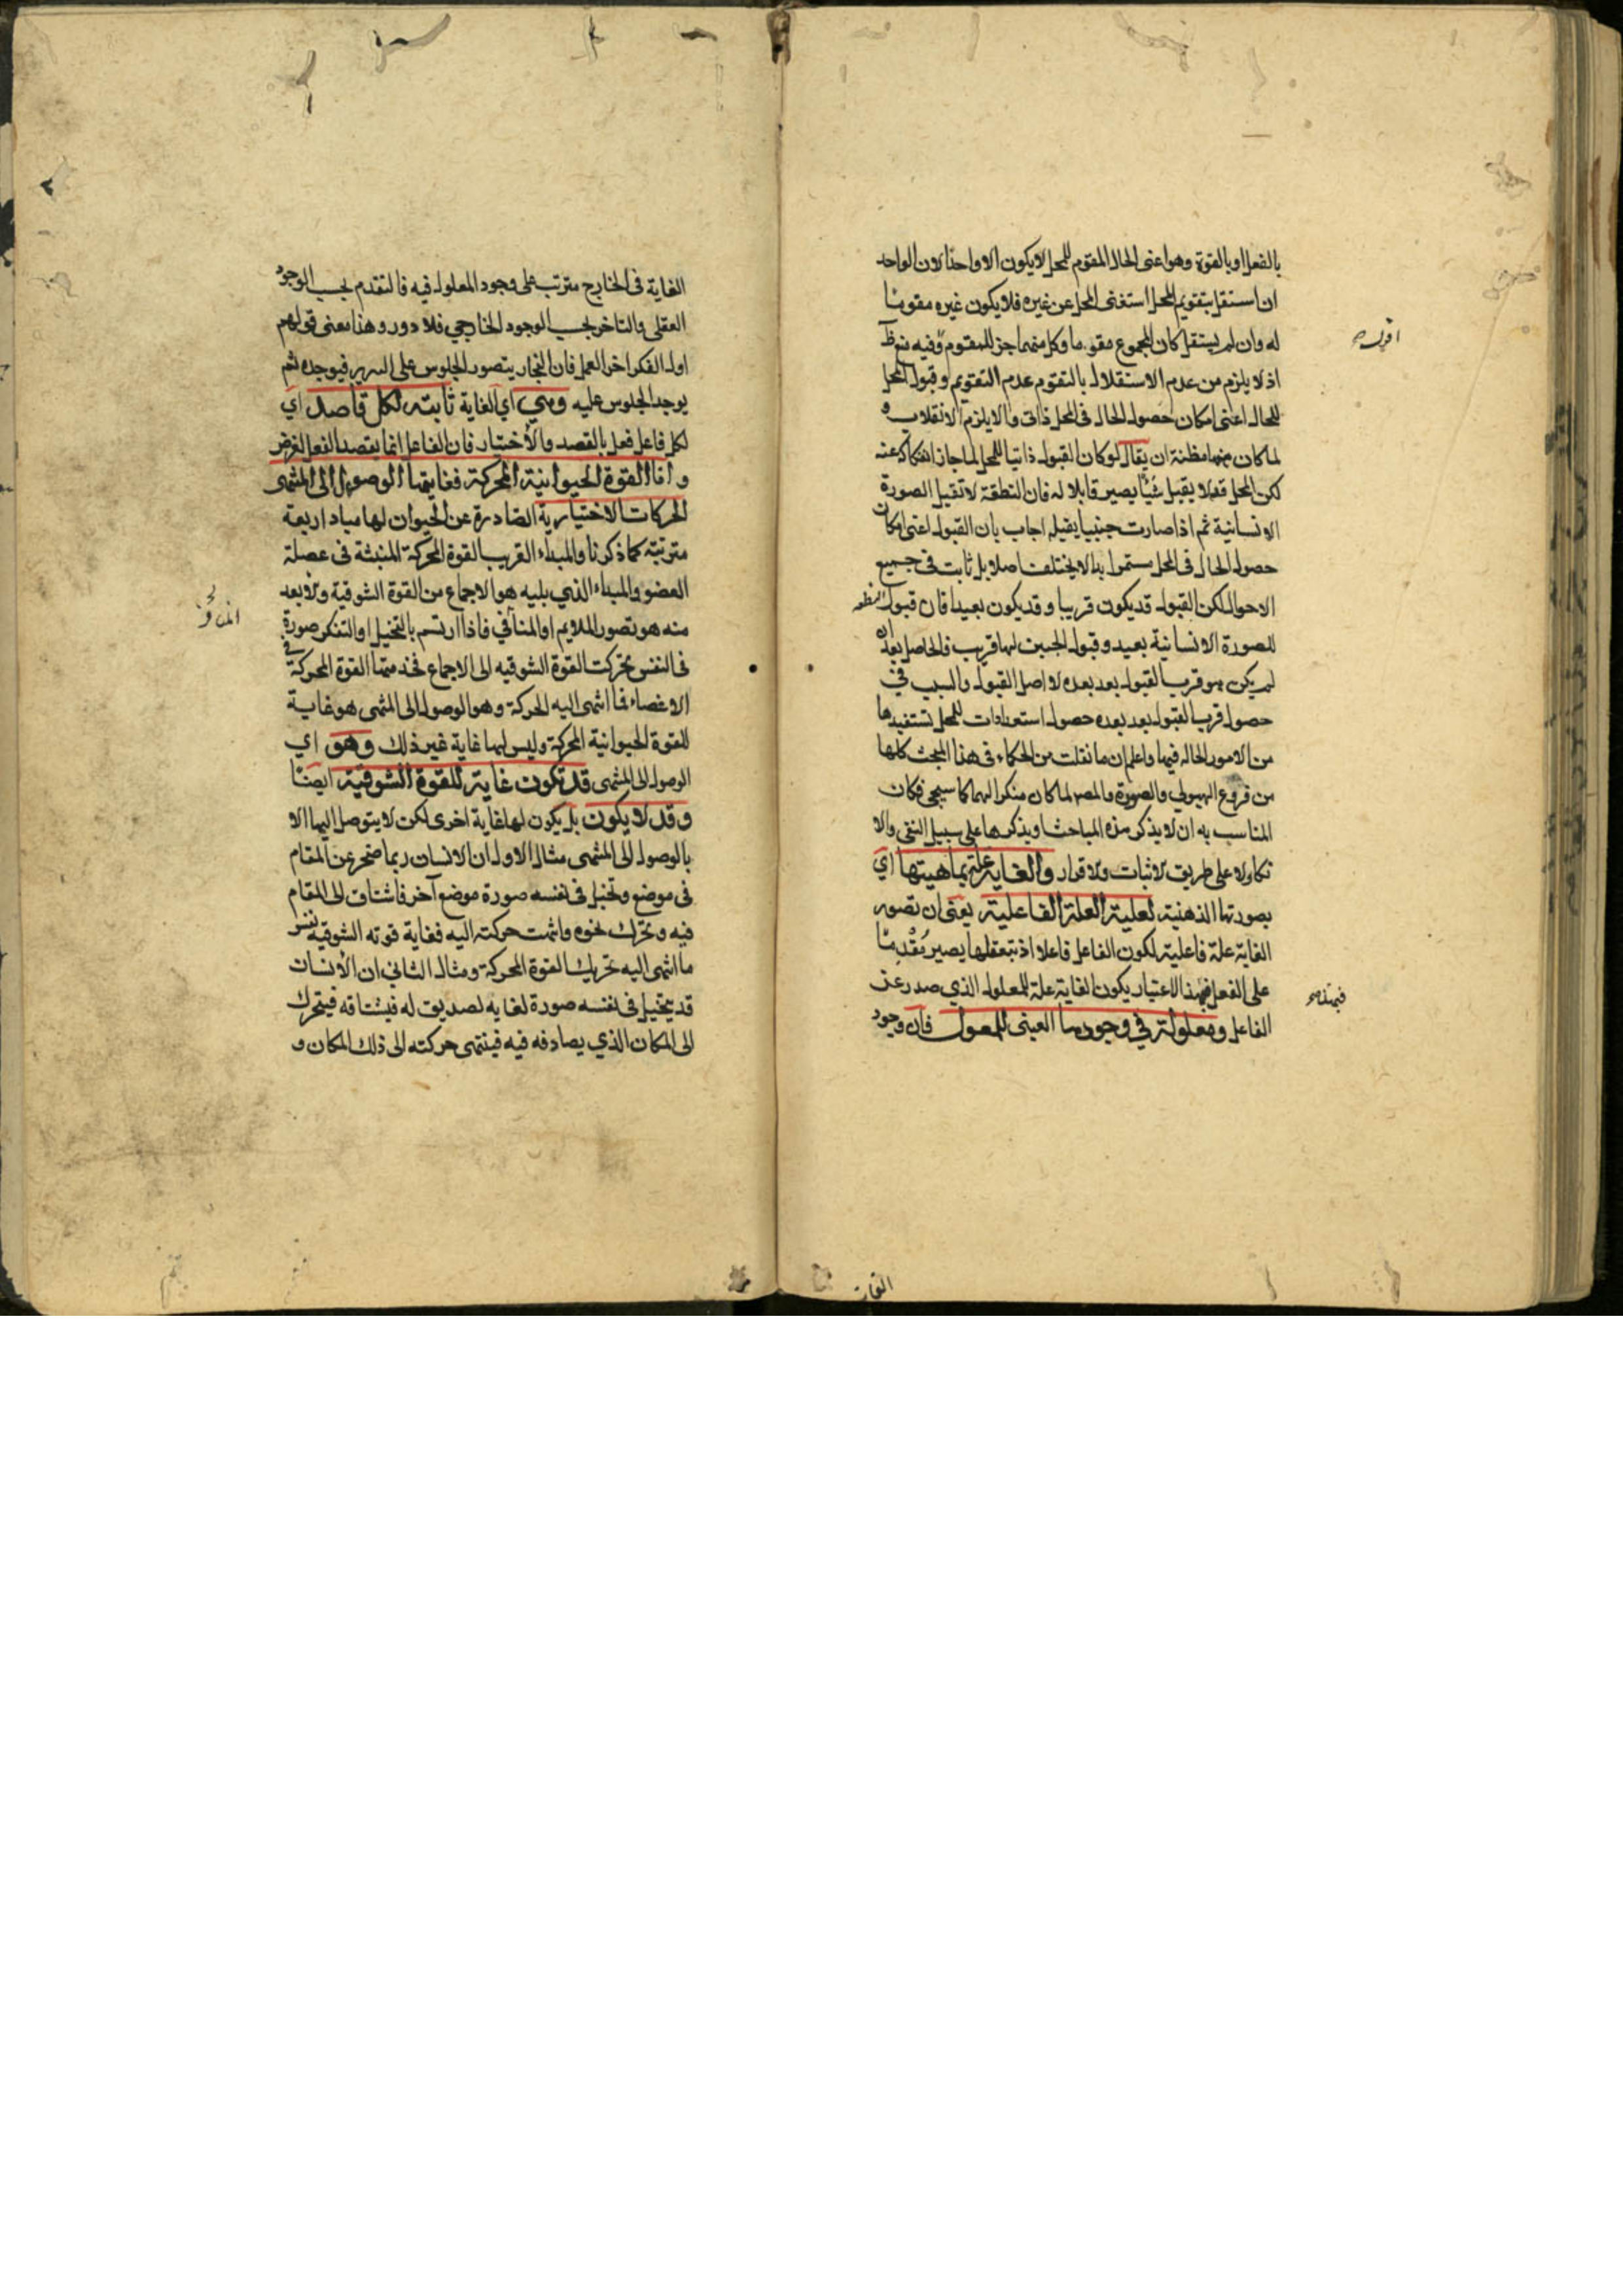 بالفعل او بالقوة وهو اعنى الحال المقوم للمحل لا يكون الا واحدا لان الواحد
ان استقل بتقويم المحل استغنى المحل عن غيره فلا يكون غيره مقوما
له وان لم يستقل كان المجموع مقوما وكل منهما جزء للمقوم وفيه نظر
اذ لا يلزم من عدم الاستقلال بالتقوم عدم التقويم وقبول المحل
للحال اعنى امكان حصول الحال فى المحل ذاتى والا لا يلزم الانقلاب و
لما كان ههنا مظنة ان يقال لو كان القبول ذاتيا للمحل لما جاز انفكاكه عنه
لكن المحل قد لا يقبل شيئا يصير قابلا له فان النطفة لا تقبل الصورة
الانسانية ثم اذا صارت جنينا يقبلها اجاب بان القبول اعنى امكان
حصول الحال فى المحل مستمر ابدا لا يختلف اصلا بل ثابت فى جميع
الاحوال لكن القبول قد يكون قريبا وقد يكون بعيدا فان قبول النطفة
للصورة الانسانية بعيد وقبول الجنين لها قريب فالحاصل بعد ان
لم يكن هو قرب القبول بعد بعده لا اصل القبول والسبب في
حصول قرب القبول بعد بعده حصول استعدادات للمحل تستفيدها
من الامور الحالة فيها واعلم ان ما نقلت من الحكماء فى هذا المبحث كلها
من فروع الهيولى والصورة والمصر لما كان منكرا لهما كما سيجي فكان
المناسب به ان لا يذكر هذه المباحث او يذكرها على سبيل النفى والا
نكار لا على طريق الاثبات والاقرار والغاية علة بماهيتها اي
بصورتها الذهنية لعلية العلة الفاعلية يعنى ان تصور
الغاية علة فاعلية لكون الفاعل فاعلا اذ بتعقلها يصير مقدما
على الفعل فبهذا الاعتبار يكون الغاية علة للمعلول الذي صدر عن
الفاعل ومعلولة في وجودها العينى للمعلول فان وجود
الغاية فى الخارج مترتب على وجود المعلول فيه فالتقدم بحسب الوجود
العقلى والتاخر بحسب الوجود الخارجي فلا دور وهذا معنى قولهم
اول الفكر اخر العمل فان النجار يتصور الجلوس على السرير فيوجده ثم
يوجد الجلوس عليه وهي اي الغاية ثابتة لكل قاصد اي
لكل فاعل فعل بالقصد والاختيار فان الفاعل انما يقصد الفعل لغرض
واما القوة الحيوانية المحركة فغايتها الوصول الى المنتهى
الحركات الاختيارية الصادرة عن الحيوان لها مباد اربعة
مترتبة كما ذكرنا والمبداء القريب القوة المحركة المنبثة فى عضلة
العضو والمبداء الذي يليه هو الاجماع من القوة الشوقية والابعد
منه هو تصور الملايم او المنافي فاذا ارتسم بالتخيل او التفكر صورة
فى النفس تحركت القوة الشوقيه الى الاجماع فخدمتها القوة المحركة في
الاعضاء فما انتهى اليه الحركة وهو الوصول الى المنتهى هو غاية
للقوة الحيوانية المحركة وليس لها غاية غير ذلك وهو اي
الوصول الى المنتهى قد تكون غاية للقوة الشوقية ايضا
وقد لا يكون بل يكون لها غاية اخرى لكن لا يتوصل اليها الا
بالوصول الى المنتهى مثال الاول ان الانسان ربما ضجر عن المقام
فى موضع وتخيل فى نفسه صورة موضع آخر فاشتاق الى المقام
فيه وتحرك نحوه وانتهت حركته اليه فغاية قوته الشوقية نفس
ما انتهى اليه تحريك القوة المحركة ومثال الثاني ان الانسان
قد يتخيل فى نفسه صورة لغاية لصديق له فيشتاقه فيتحرك
الى المكان الذي يصادفه فيه فينتهى حركته الى ذلك المكان و